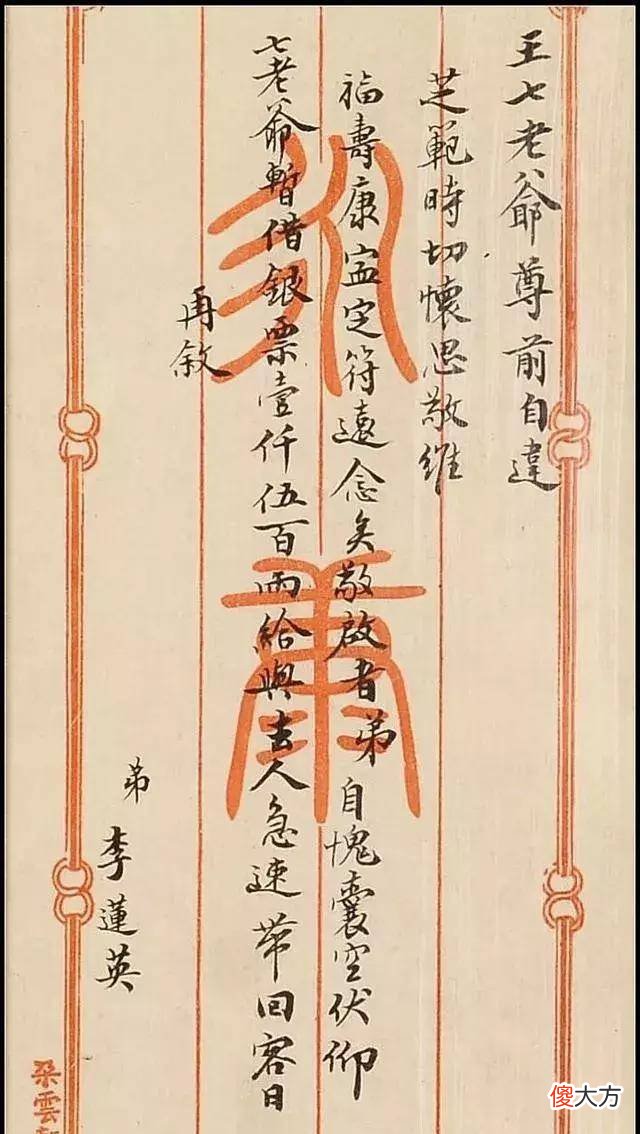 王七老爺尊前自違
芝範時切懷思敬維
福壽康寍定符遠念矣敬啟者弟自愧囊空伏仰
七老爺暫借銀票壹仟伍百兩給與去人急速帶回容日
再敘
弟
李蓮英
朵雲
傻大方